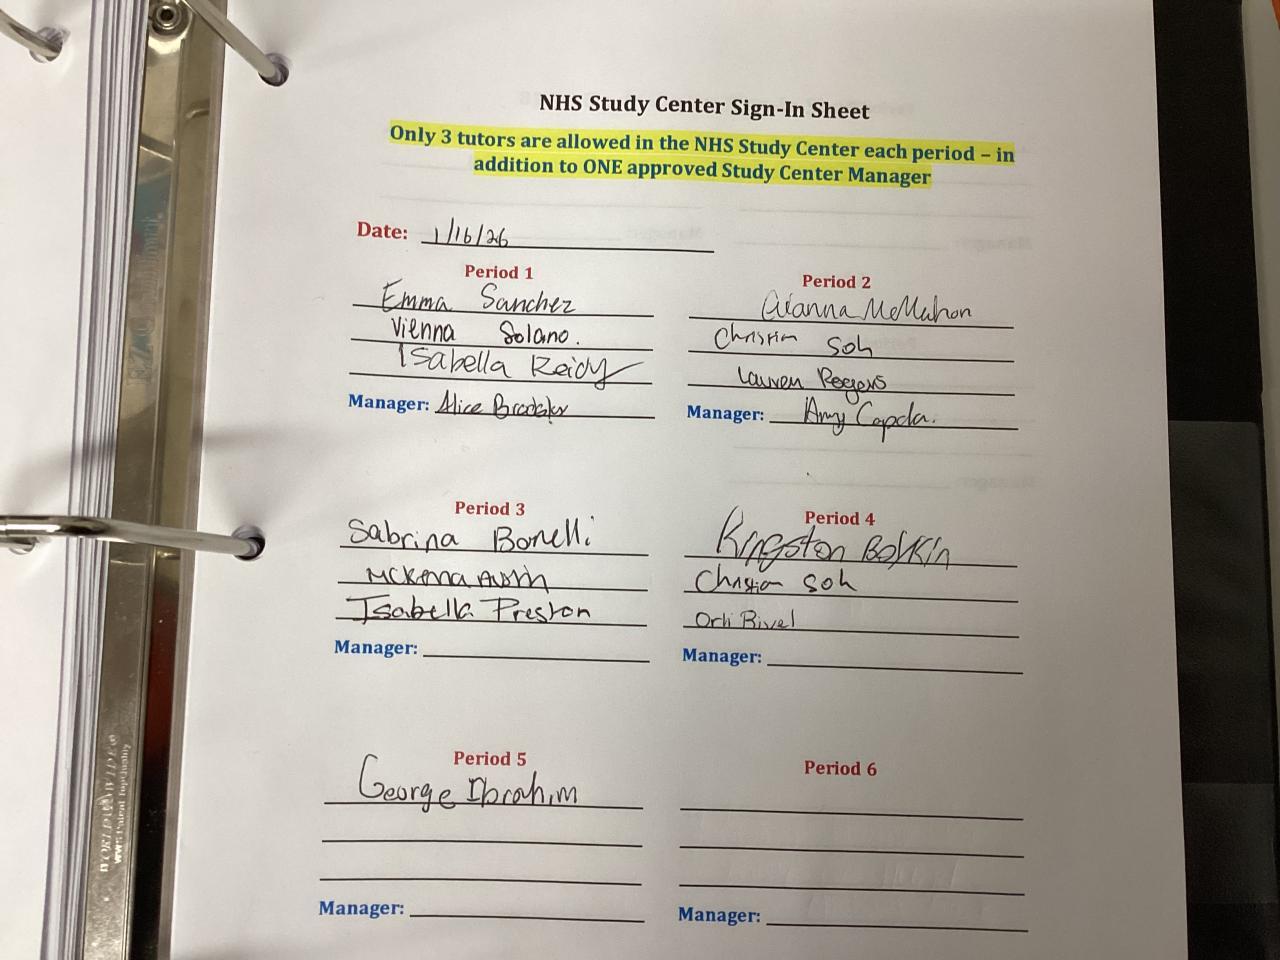 NHS Study Center Sign-In Sheet
Only 3 tutors are allowed in the NHS Study Center each period – in
addition to ONE approved Study Center Manager
Date: 1/16/26
Period 1
Emma Sanchez
Vienna Solano.
Isabella Reidy
Manager: Alice
Period 2
McMahon
Christian Soh
Lauren Rogers
Manager: Amy
Period 3
Sabrina Bonelli
McKenna Austin
Isabella Preston
Manager:
Period 4
Kingston Boykin
Christian Soh
Orli
Manager:
Period 5
George Ibrahim
Manager:
Period 6
Manager:
WORLD WIDE